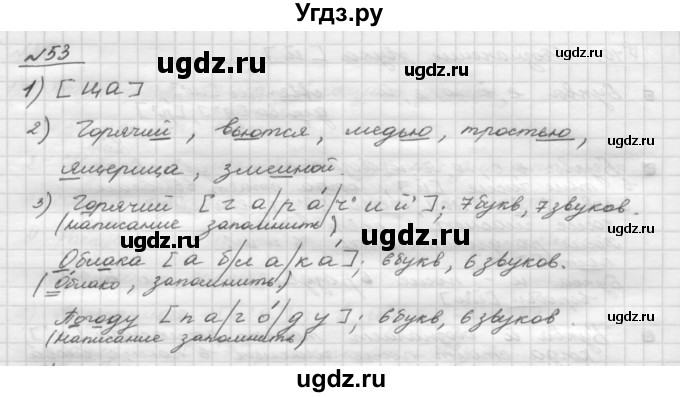 Угдз.ру
№53
1) [ ца ]
2) Горячий, вьются, медью, тростью,
ящерица, змеиной.
3) Горячий [ г а / р а́ / ч' и й' ]; 7 букв, 7 звуков.
(написание запомнить)
Облака [ а б / л а / к а́ ]; 6 букв, 6 звуков.
(Облако, запомнить)
Погоду [ п а / г о́ / д у ]; 6 букв, 6 звуков
(написание запомнить)
ugdz.ru
ugdz.ru
ugdz.ru
ugdz.ru
ugdz.ru
ugdz.ru
ugdz.ru
ugdz.ru
ugdz.ru